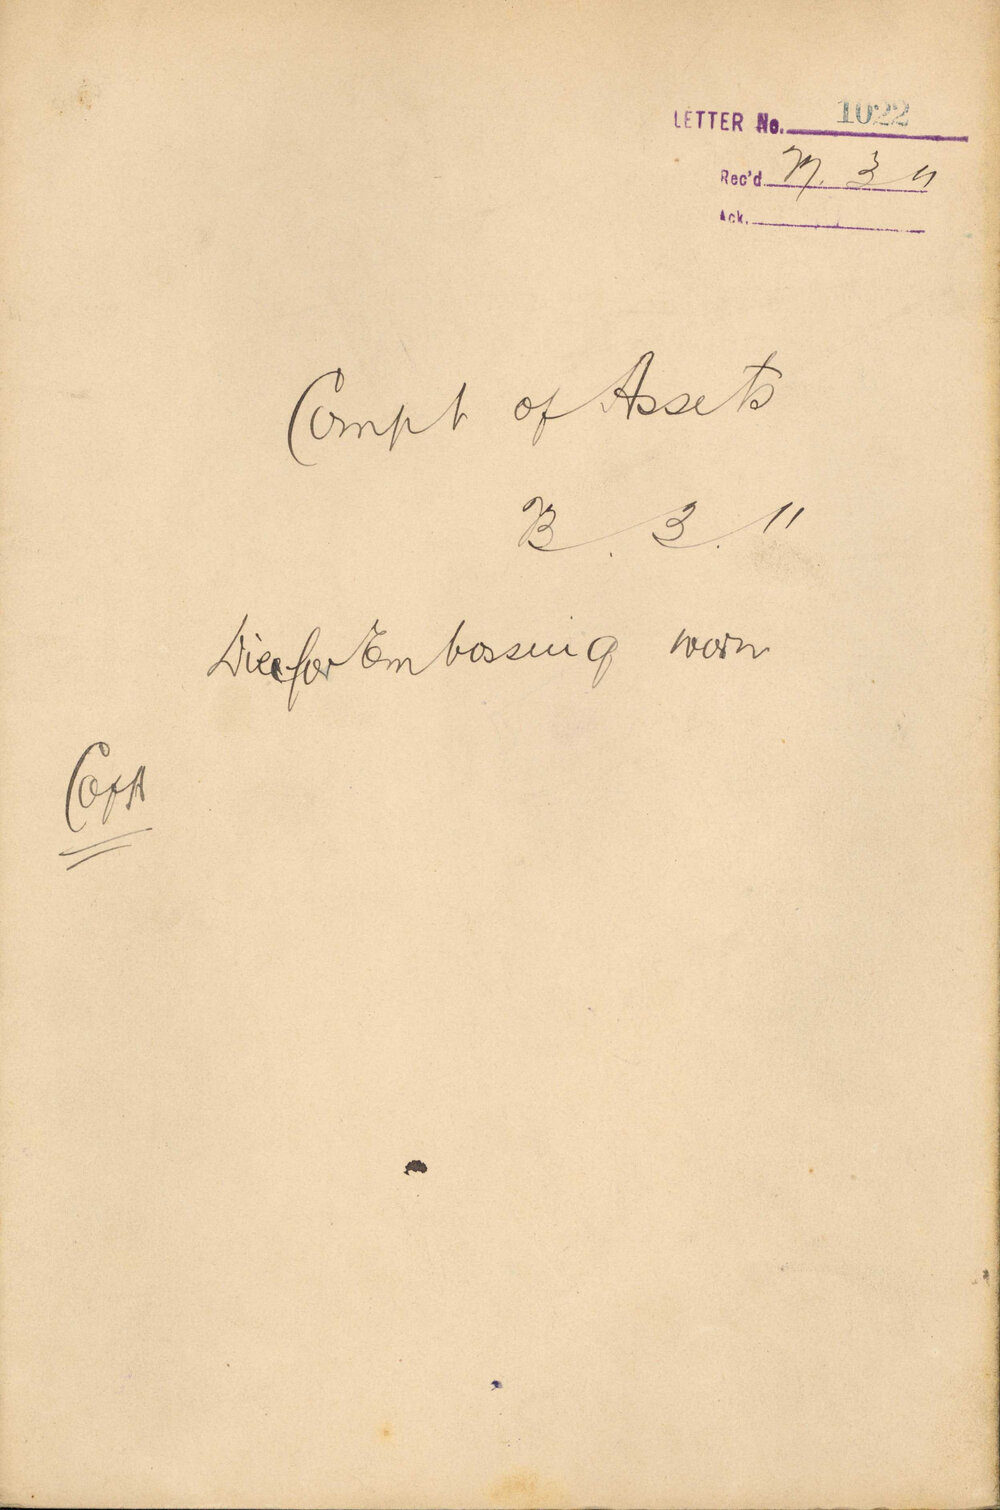 LETTER No. 1022
Rec'd 3 11
Ack.
Compt of Assets
3. 11
Dies for Embossing worn
CofA